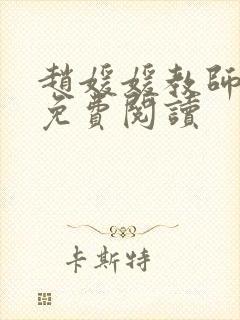 趙媛媛教師
免費閱讀
卡斯特